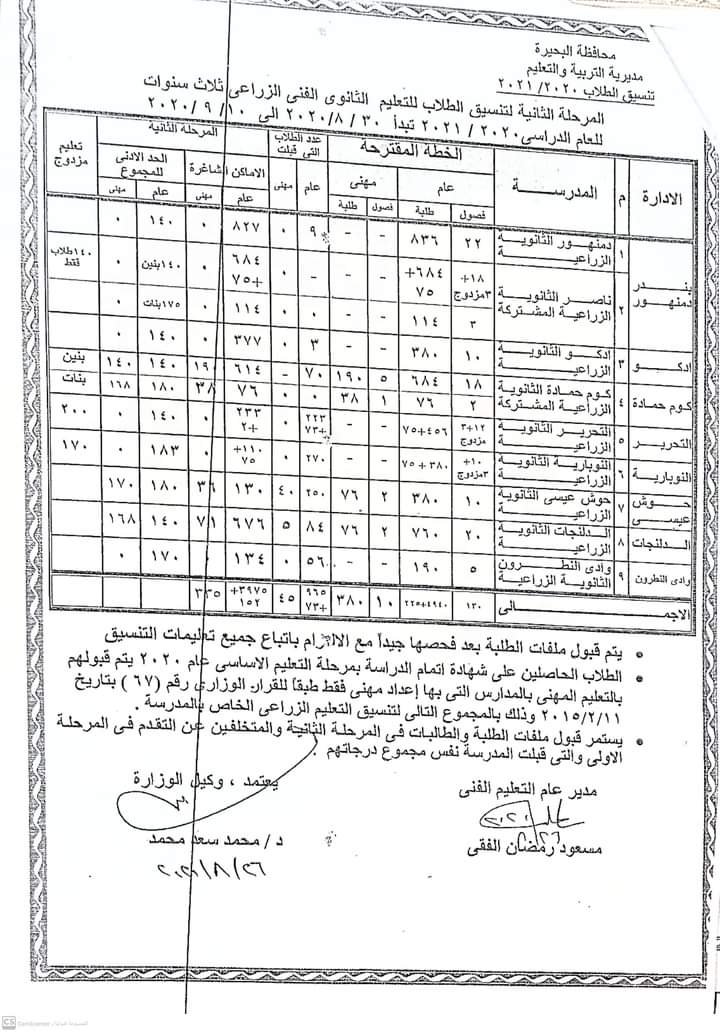 محافظة البحيرة
مديرية التربية والتعليم
تنسيق الطلاب ٢٠٢٠/ ٢٠٢١
المرحلة الثانية لتنسيق الطلاب للتعليم الثانوى الفنى الزراعى ثلاث سنوات
للعام الدراسى ٢٠٢٠ / ٢٠٢١ تبدأ ٣٠ / ٨ / ٢٠٢٠ الى ١٠ / ٩ / ٢٠٢٠
الادارة م المدرسة الخطة المقترحة عدد الطلاب التى قبلت المرحلة الثانية تعليم مزدوج
عام مهنى عام مهنى الاماكن الشاغرة الحد الادنى للمجموع
فصول طلبة فصول طلبة عام مهنى عام مهنى
بندر دمنهور ١ دمنهور الثانوية الزراعية ٢٢ ٨٣٦ - - ٩ ٠ ٨٢٧ ٠ ١٤٠ ٠
٢ ناصر الثانوية الزراعية المشتركة ١٨+ ٣مزدوج ٦٨٤+ ٧٥ - - - ٠ ٦٨٤ +٧٥ ٠ ١٤٠بنين ٠ ١٤٠طلاب فقط
٣ ١١٤ - - ٠ ٠ ١١٤ ٠ ١٧٥بنات ٠
ادكو ٣ ادكو الثانوية الزراعية ١٠ ٣٨٠ - - ٣ ٠ ٣٧٧ ٠ ١٤٠ ٠
كوم حمادة ٤ كوم حمادة الثانوية الزراعية المشتركة ١٨ ٦٨٤ ٥ ١٩٠ ٧٠ - ٦١٤ ١٩٠ ١٤٠ ١٤٠ بنين
٢ ٧٦ ١ ٣٨ ٠ ٠ ٧٦ ٣٨ ١٨٠ ١٦٨ بنات
التحرير ٥ التحرير الثانوية الزراعية ١٢+٣ مزدوج ٤٥٦+٧٥ - - ٢٢٣ +٧٣ ٠ ٢٣٣ +٢ ٠ ١٤٠ ٠ ٢٠٠
النوبارية ٦ النوبارية الثانوية الزراعية ١٠+ ٣مزدوج ٣٨٠+٧٥ - - ٢٧٠ ٠ ١١٠+ ٧٥ ٠ ١٨٣ ٠ ١٧٠
حوش عيسى ٧ حوش عيسى الثانوية الزراعية ١٠ ٣٨٠ ٢ ٧٦ ٢٥٠ ٤٠ ١٣٠ ٣٦ ١٨٠ ١٧٠
الدلنجات ٨ الدلنجات الثانوية الزراعية ٢٠ ٧٦٠ ٢ ٧٦ ٨٤ ٥ ٦٧٦ ٧١ ١٤٠ ١٦٨
وادى النطرون ٩ وادى النطرون الثانوية الزراعية ٥ ١٩٠ - - ٥٦ ٠ ١٣٤ ٠ ١٧٠ ٠
الاجمالى ١٣٠ ٤٩٤٠+٢٢٥ ١٠ ٣٨٠ ٩٦٥ +٧٣ ٤٥ ٣٩٧٥+ ١٥٢ ٣٣٥
يتم قبول ملفات الطلبة بعد فحصها جيداً مع الالتزام باتباع جميع تعليمات التنسيق
الطلاب الحاصلين على شهادة اتمام الدراسة بمرحلة التعليم الاساسى عام ٢٠٢٠ يتم قبولهم
بالتعليم المهنى بالمدارس التى بها إعداد مهنى فقط طبقاً للقرار الوزارى رقم (٦٧ ) بتاريخ
٢٠١٥/٢/١١ وذلك بالمجموع التالى لتنسيق التعليم الزراعى الخاص بالمدرسة .
يستمر قبول ملفات الطلبة والطالبات فى المرحلة الثانية والمتخلفين عن التقدم فى المرحلة
الاولى والتى قبلت المدرسة نفس مجموع درجاتهم .
مدير عام التعليم الفنى
يعتمد ، وكيل الوزارة
مسعود رمضان الفقى
د / محمد سعد محمد
٢٠٢٠/٨/٢٦
CS CamScanner